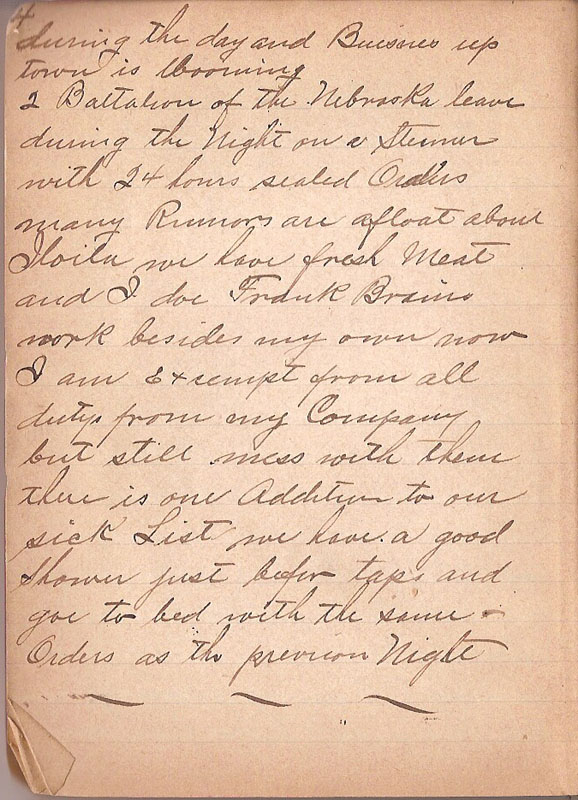 4
during the day and Buisnes up
town is booming
2 Battalion of the Nebraska leave
during the Night on a Stemer
with 24 hours sealed Orders
many Rumors are afloat about
Iloilo we have fresh Meat
and I doe Frank Brains
work besides my own now
I am Exempt from all
dutys from my Company
but still mess with them
there is one Addition to our
sick List we have a good
shower just befor taps and
goe to bed with the same
Orders as the previous Night